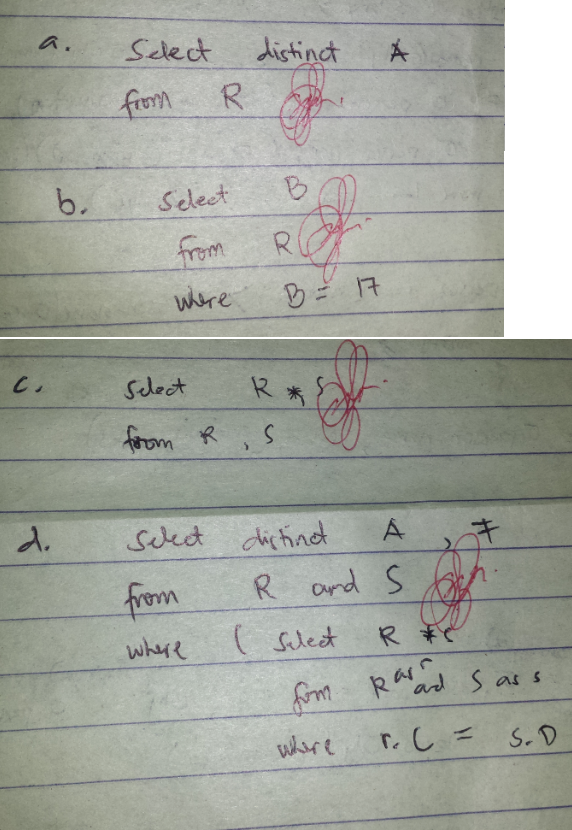 a. Select distinct A
from R
b. Select B
from R
where B = 17
c. Select R *, S
from R , S
d. Select distinct A , F
from R and S
where ( Select R *
from R as r and S as s
where r.C = S.D